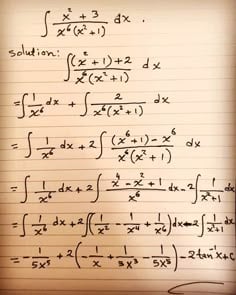 ∫ x² + 3 / x⁶(x² + 1) dx .
solution: ∫ (x² + 1) + 2 / x⁶(x² + 1) dx
= ∫ 1/x⁶ dx + ∫ 2 / x⁶(x² + 1) dx
= ∫ 1/x⁶ dx + 2 ∫ (x⁶ + 1) - x⁶ / x⁶(x² + 1) dx
= ∫ 1/x⁶ dx + 2 ∫ x⁴ - x² + 1 / x⁶ dx - 2 ∫ 1/x²+1 dx
= ∫ 1/x⁶ dx + 2 ∫ (1/x² - 1/x⁴ + 1/x⁶) dx - 2 ∫ 1/x²+1 dx
= - 1/5x⁵ + 2(- 1/x + 1/3x³ - 1/5x⁵) - 2 tan⁻¹x + c